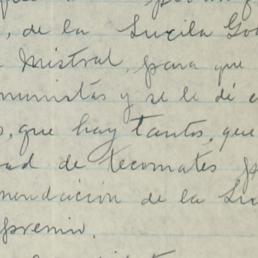 , de la Lucila Go
Mistral, para que
munistas y se le dé
, que hay tantos, que
dad de tecomates p
mendación de la Lu
premio.